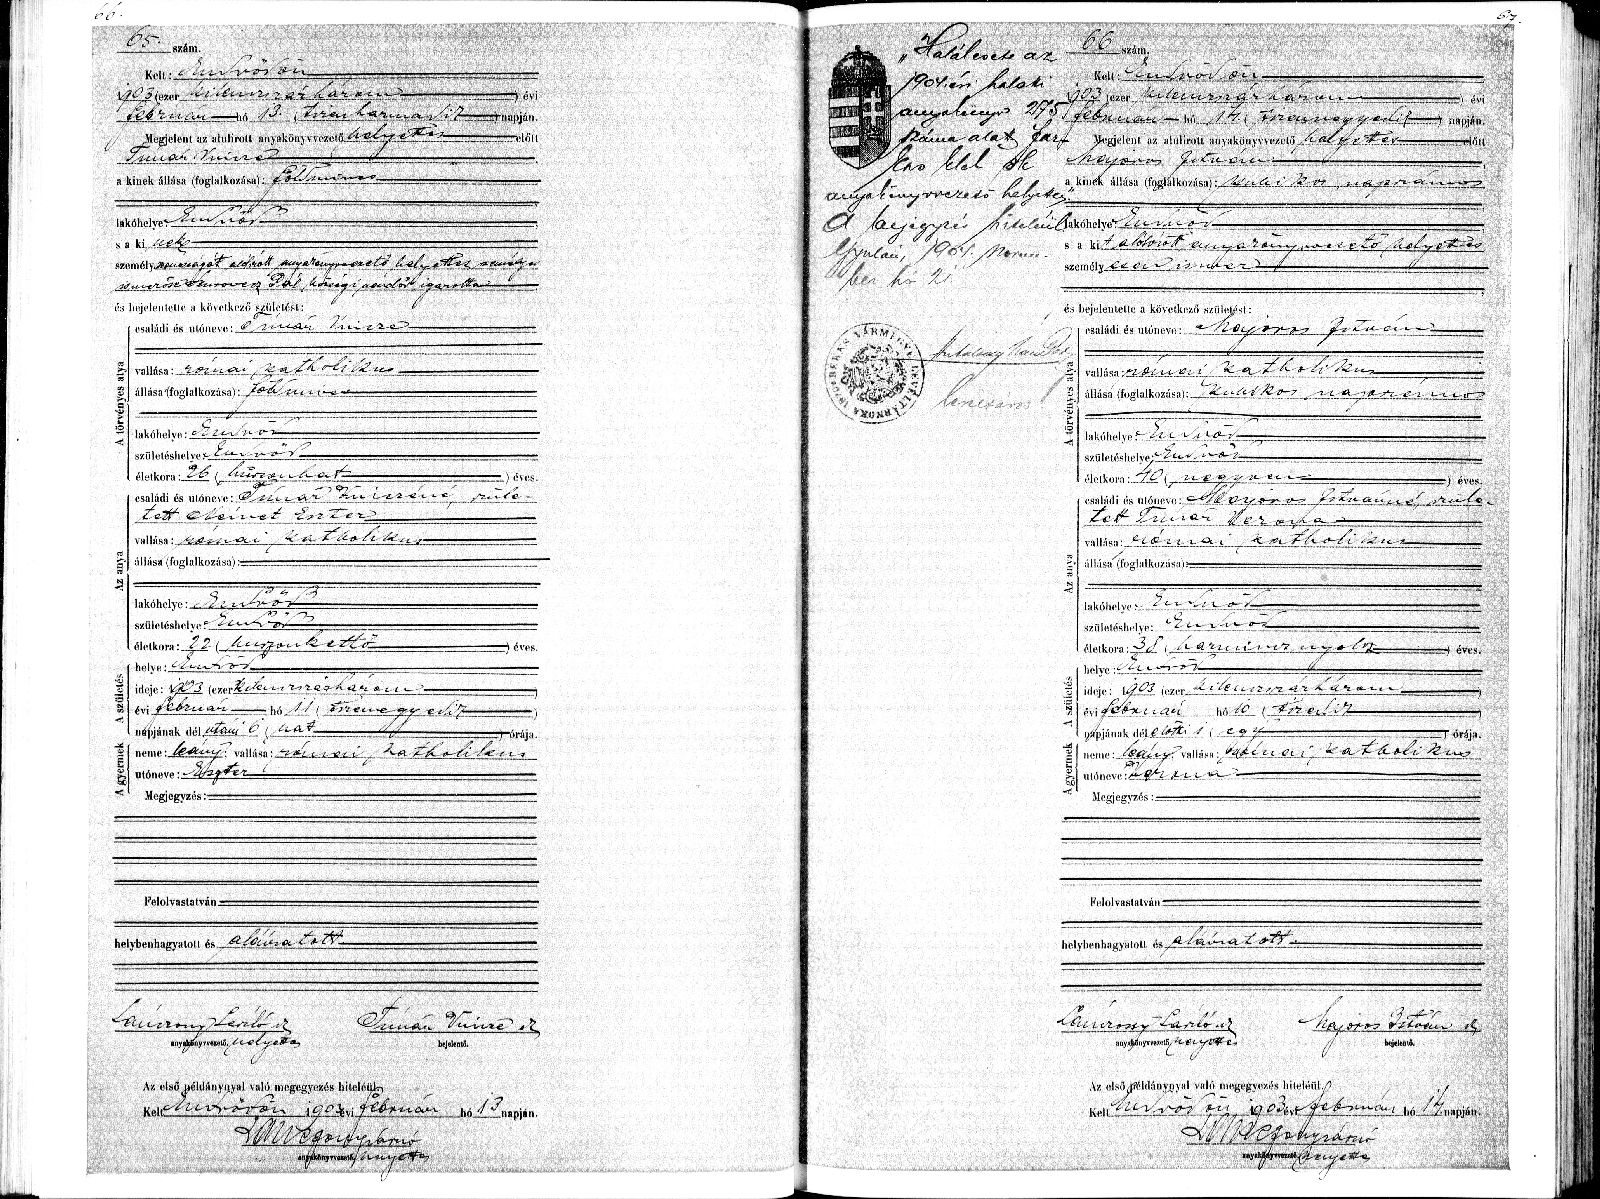 66.
65. szám.
Kelt: Endrődön
1903 (ezer kilenczszázhárom) évi
február hó 13. (tizenharmadik) napján.
Megjelent az alulirott anyakönyvvezető helyettes előtt
Tímár Vincze
a kinek állása (foglalkozása): földmíves
lakóhelye: Endrőd
s a ki nek
személyazonosságát alólirott anyakönyvvezető helyettes
Pál községi rendőr igazolta
és bejelentette a következő születést:
A törvényes atya
családi és utóneve: Tímár Vincze
vallása: római katholikus
állása (foglalkozása): földmíves
lakóhelye: Endrőd
születéshelye: Endrőd
életkora: 26 (huszonhat) éves.
Az anya
családi és utóneve: Tímár Vinczéné, szüle-
tett Német Eszter
vallása: római katholikus
állása (foglalkozása):
lakóhelye: Endrőd
születéshelye: Endrőd
életkora: 22 (huszonkettő) éves.
A születés
helye: Endrőd
ideje: 1903 (ezer kilenczszázhárom)
évi február hó 11 (tizenegyedik)
napjának dél utáni 6 (hat) órája.
A gyermek
neme: leány vallása: római katholikus
utóneve: Eszter
Megjegyzés:
Felolvastatván
helybenhagyatott és aláíratott
László
anyakönyvvezető helyettes
Tímár Vincze
bejelentő.
Az első példánynyal való megegyezés hiteléül.
Kelt Endrődön 1903 évi február hó 13 napján.
anyakönyvvezető helyettes
67.
„Halálesete az
1904. évi halotti
anyakönyv 275
száma alatt.
anyakönyvvezető helyettes"
A bejegyzés hiteléül
Gyulán, 1904. Novem-
ber hó 21
BÉKÉS VÁRMEGYE LEVÉLTÁRNOKA
66 szám.
Kelt: Endrődön
1903 (ezer kilenczszázhárom) évi
február hó 14. (tizennegyedik) napján.
Megjelent az alulirott anyakönyvvezető helyettes előtt
Majoros István
a kinek állása (foglalkozása): kubikos, napszámos
lakóhelye: Endrőd
s a ki t alólirott anyakönyvvezető helyettes
személyesen ismer
és bejelentette a következő születést:
A törvényes atya
családi és utóneve: Majoros István
vallása: római katholikus
állása (foglalkozása): kubikos napszámos
lakóhelye: Endrőd
születéshelye: Endrőd
életkora: 40 (negyven) éves.
Az anya
családi és utóneve: Majoros Istvánné, szüle-
tett Tímár Verona
vallása: római katholikus
állása (foglalkozása):
lakóhelye: Endrőd
születéshelye: Endrőd
életkora: 38 (harmincz nyolcz) éves.
A születés
helye: Endrőd
ideje: 1903 (ezer kilenczszázhárom)
évi február hó 10 (tizedik)
napjának dél előtti 1 (egy) órája.
A gyermek
neme: leány vallása: római katholikus
utóneve: Verona
Megjegyzés:
Felolvastatván
helybenhagyatott és aláíratott.
László
anyakönyvvezető helyettes
Majoros István
bejelentő.
Az első példánynyal való megegyezés hiteléül.
Kelt Endrődön, 1903 évi február hó 14 napján.
anyakönyvvezető helyettes